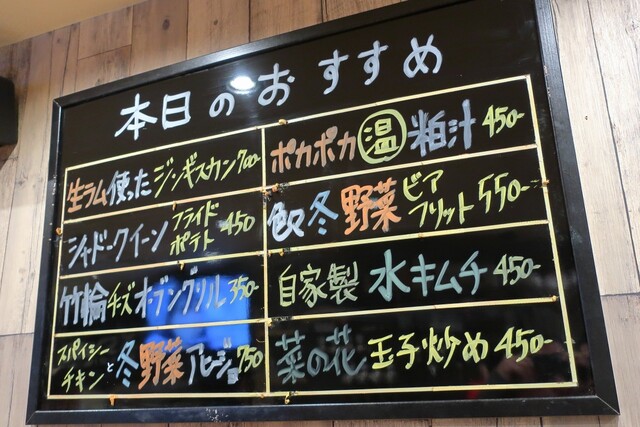 本日のおすすめ
生ラム使ったジンギスカン700-
シャドークイーンフライドポテト450
竹輪チーズオーブングリル350-
スパイシーチキンと冬野菜アヒージョ750
ポカポカ温粕汁450-
冬野菜ビアフリット550-
自家製水キムチ450-
菜の花玉子炒め450-